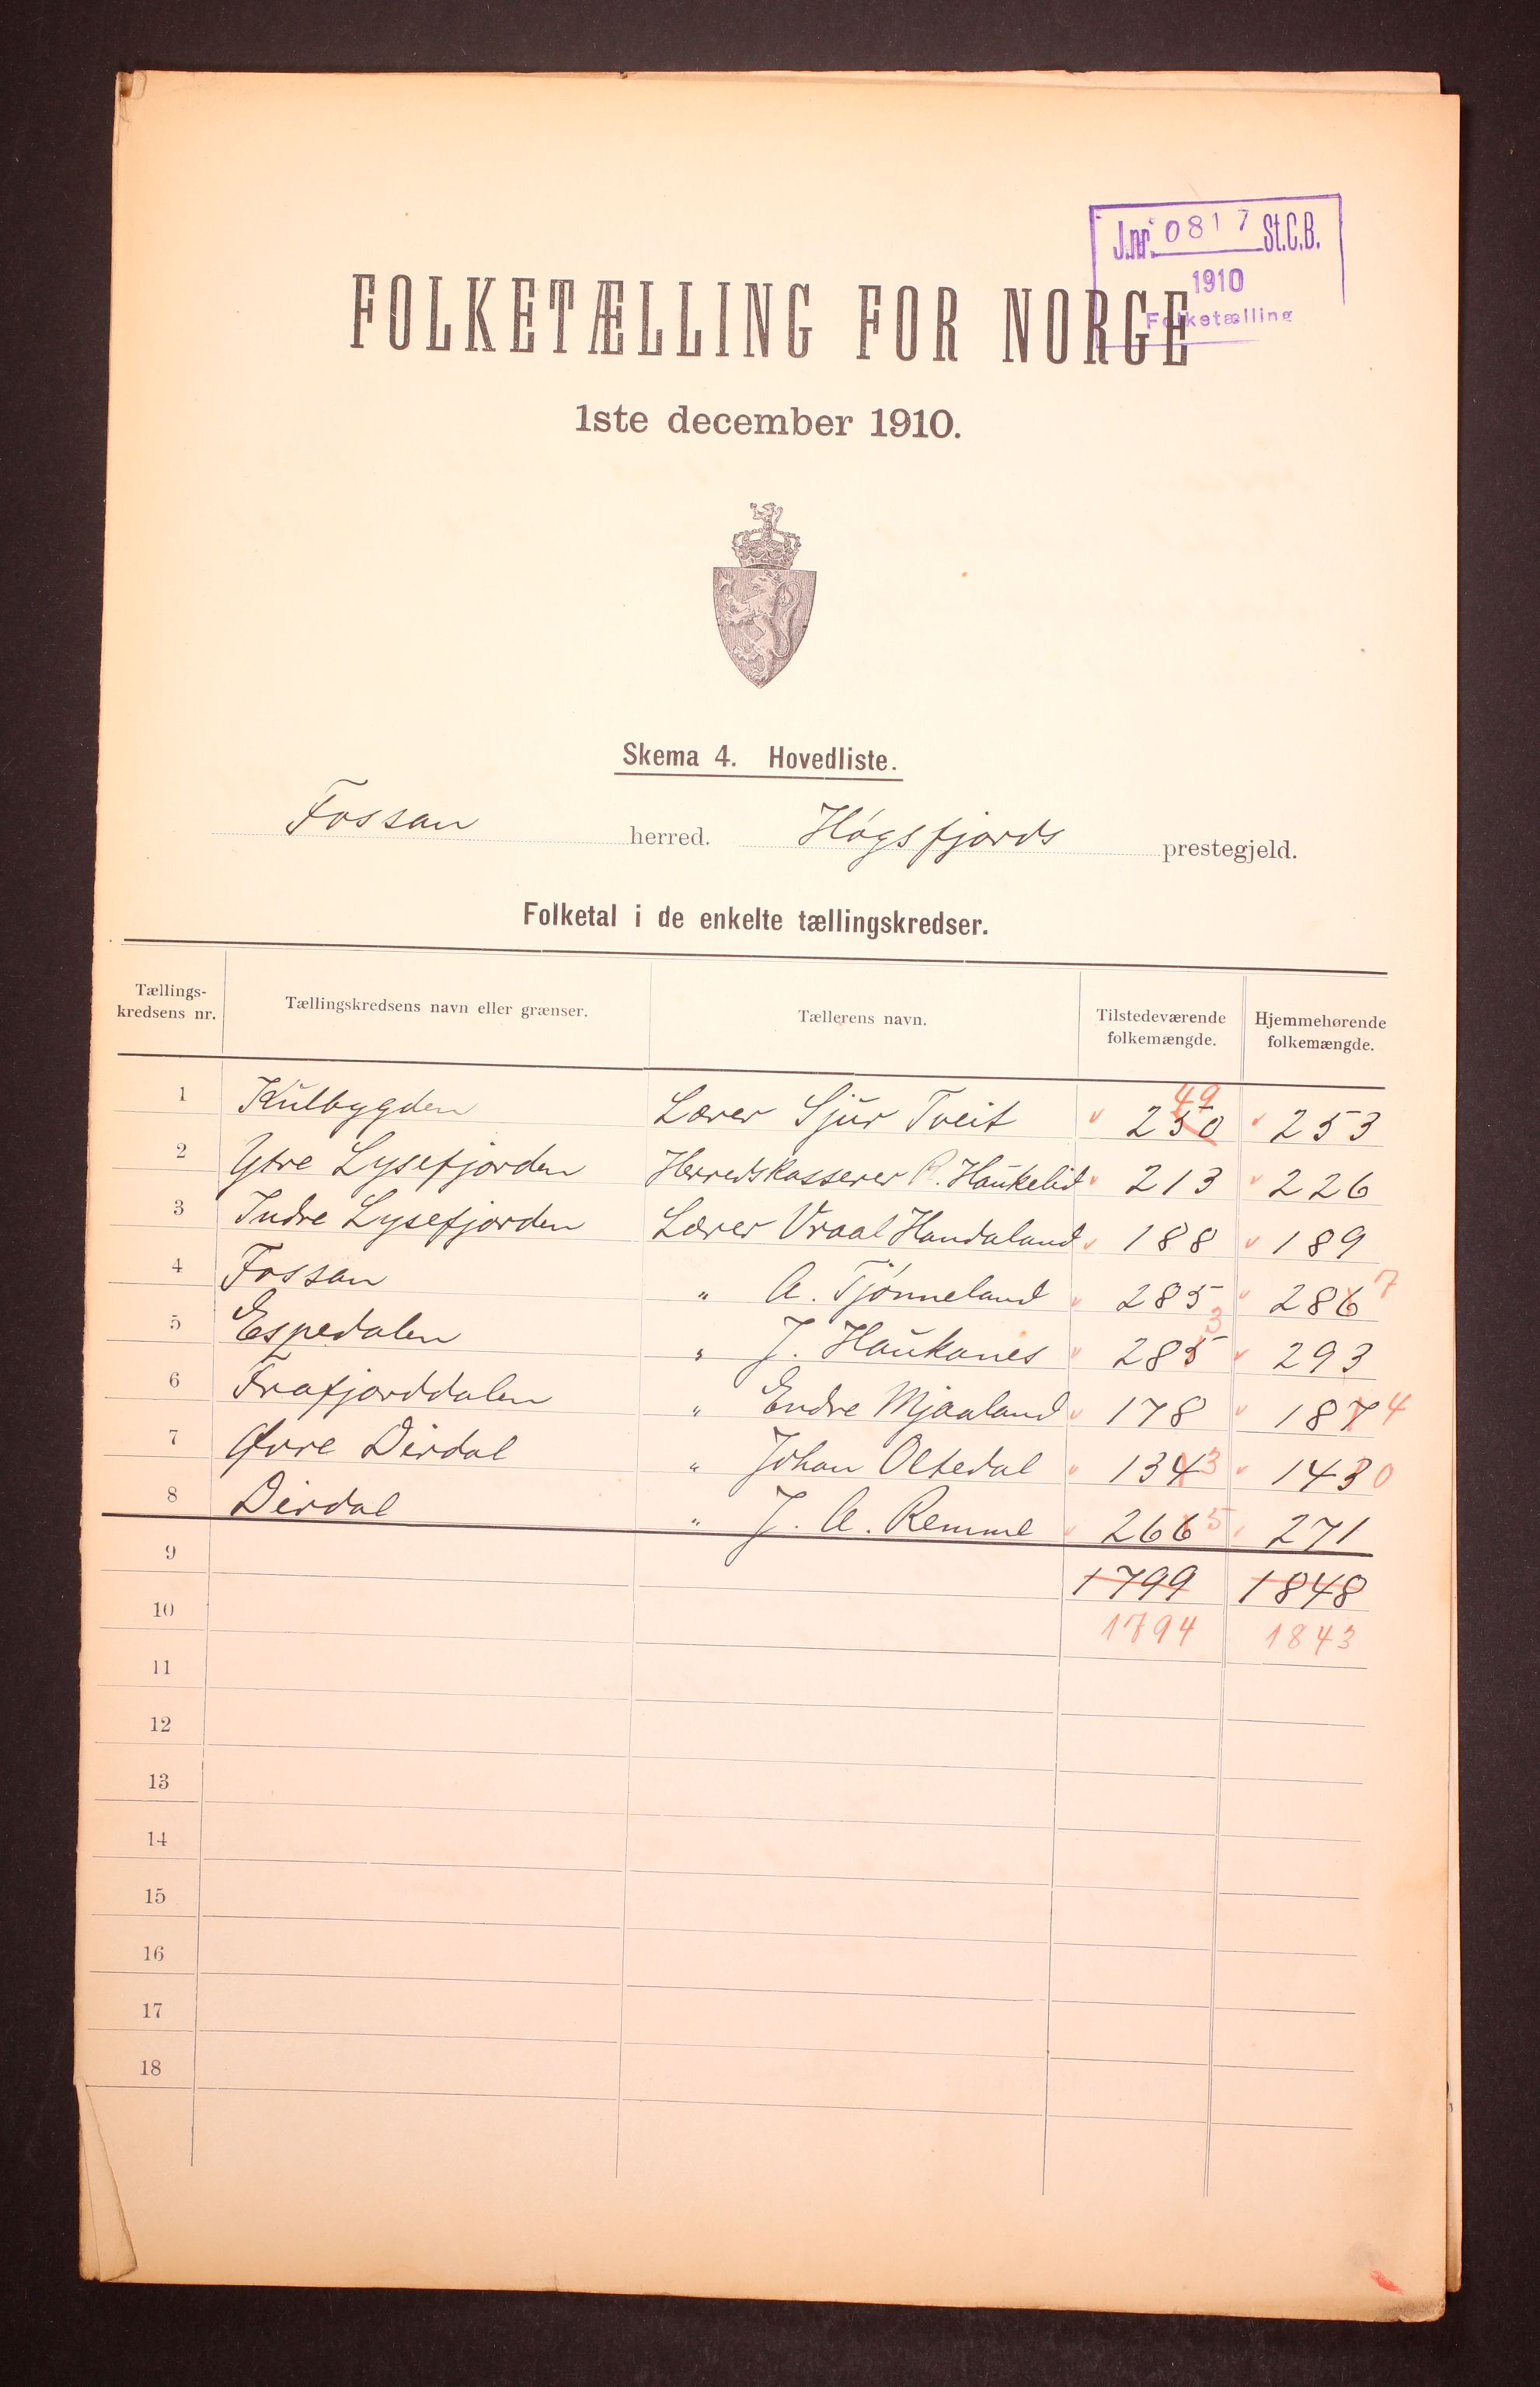 J.nr. 0817 St.C.B.
1910
Folketælling
FOLKETÆLLING FOR NORGE
1ste december 1910.
Skema 4. Hovedliste.
Fossan herred. Høgsfjords prestegjeld.
Folketal i de enkelte tællingskredser.
Tællings-kredsens nr. Tællingskredsens navn eller grænser. Tællerens navn. Tilstedeværende folkemængde. Hjemmehørende folkemængde.
1 Kulbygden Lærer Sjur Tveit 250 49 253
2 Ytre Lysefjorden Herredskasserer R. Haukelid 213 226
3 Indre Lysefjorden Lærer Vraal Handaland 188 189
4 Fossan " A. Tjønneland 285 286 7
5 Espedalen " J. Haukanes 285 3 293
6 Frafjorddalen " Endre Mjaaland 178 187 4
7 Øvre Dirdal " Johan Oltedal 134 3 143 0
8 Dirdal " J. A. Remme 266 5 271
9 1799 1848
10 1794 1843
11
12
13
14
15
16
17
18